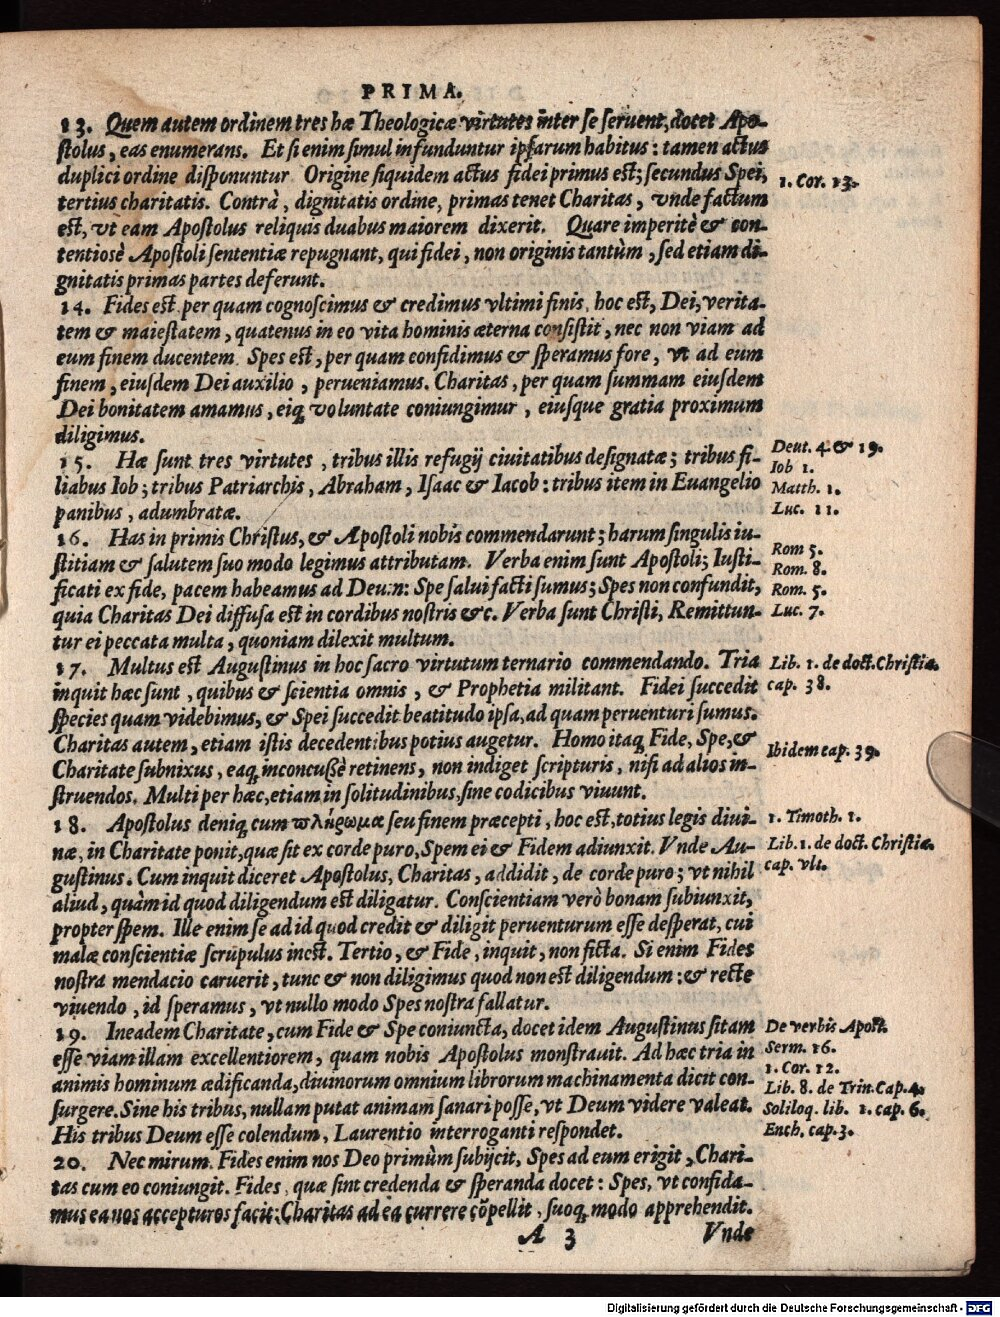 PRIMA.
13. Quem autem ordinem tres hæ Theologicæ virtutes inter se seruent, docet Apo-
stolus, eas enumerans. Et si enim simul infunduntur ipsarum habitus: tamen actus
duplici ordine disponuntur Origine siquidem actus fidei primus est; secundus Spei,
1. Cor. 13.
tertius charitatis. Contrà, dignitatis ordine, primas tenet Charitas, vnde factum
est, vt eam Apostolus reliquis duabus maiorem dixerit. Quare imperitè & con-
tentiosè Apostoli sententiæ repugnant, qui fidei, non originis tantùm, sed etiam di-
gnitatis primas partes deferunt.
14. Fides est per quam cognoscimus & credimus vltimi finis, hoc est, Dei, verita-
tem & maiestatem, quatenus in eo vita hominis æterna consistit, nec non viam ad
eum finem ducentem. Spes est, per quam confidimus & speramus fore, vt ad eum
finem, eiusdem Dei auxilio, perueniamus. Charitas, per quam summam eiusdem
Dei bonitatem amamus, eiq; voluntate coniungimur, eiusque gratia proximum
diligimus.
15. Hæ sunt tres virtutes, tribus illis refugij ciuitatibus designatæ; tribus fi-
Deut. 4. & 19.
liabus Iob; tribus Patriarchis, Abraham, Isaac & Iacob: tribus item in Euangelio
Iob 1.
Matth. 1.
panibus, adumbratæ.
Luc. 11.
16. Has in primis Christus, & Apostoli nobis commendarunt; harum singulis iu-
stitiam & salutem suo modo legimus attributam. Verba enim sunt Apostoli; Iusti-
Rom 5.
Rom. 8.
ficati ex fide, pacem habeamus ad Deum: Spe salui facti sumus; Spes non confundit,
Rom. 5.
quia Charitas Dei diffusa est in cordibus nostris &c. Verba sunt Christi, Remittun-
Luc. 7.
tur ei peccata multa, quoniam dilexit multum.
17. Multus est Augustinus in hoc sacro virtutum ternario commendando. Tria
Lib. 1. de doct. Christia.
inquit hæc sunt, quibus & scientia omnis, & Prophetia militant. Fidei succedit
cap. 38.
species quam videbimus, & Spei succedit beatitudo ipsa, ad quam peruenturi sumus.
Charitas autem, etiam istis decedentibus potius augetur. Homo itaq; Fide, Spe, &
Ibidem cap. 39.
Charitate subnixus, eaq; inconcussè retinens, non indiget scripturis, nisi ad alios in-
struendos. Multi per hæc, etiam in solitudinibus, sine codicibus viuunt.
18. Apostolus deniq; cum πλήρωμα seu finem præcepti, hoc est, totius legis diui-
1. Timoth. 1.
næ, in Charitate ponit, quæ sit ex corde puro, Spem ei & Fidem adiunxit. Vnde Au-
Lib. 1. de doct. Christia.
cap. vlt.
gustinus. Cum inquit diceret Apostolus, Charitas, addidit, de corde puro; vt nihil
aliud, quàm id quod diligendum est diligatur. Conscientiam verò bonam subiunxit,
propter spem. Ille enim se ad id quod credit & diligit peruenturum esse desperat, cui
malæ conscientiæ scrupulus inest. Tertio, & Fide, inquit, non ficta. Si enim Fides
nostra mendacio caruerit, tunc & non diligimus quod non est diligendum: & recte
viuendo, id speramus, vt nullo modo Spes nostra fallatur.
19. In eadem Charitate, cum Fide & Spe coniuncta, docet idem Augustinus sitam
De verbis Apost.
Serm. 16.
esse viam illam excellentiorem, quam nobis Apostolus monstrauit. Ad hæc tria in
1. Cor. 12.
animis hominum ædificanda, diuinorum omnium librorum machinamenta dicit con-
Lib. 8. de Trin. Cap. 4.
surgere. Sine his tribus, nullam putat animam sanari posse, vt Deum videre valeat.
Soliloq. lib. 1. cap. 6.
His tribus Deum esse colendum, Laurentio interroganti respondet.
Ench. cap. 3.
20. Nec mirum. Fides enim nos Deo primùm subijcit, Spes ad eum erigit, Chari-
tas cum eo coniungit. Fides, quæ sint credenda & speranda docet: Spes, vt confida-
mus ea nos accepturos facit: Charitas ad ea currere cōpellit, suoq; modo apprehendit.
A 3 Vnde
Digitalisierung gefördert durch die Deutsche Forschungsgemeinschaft - DFG